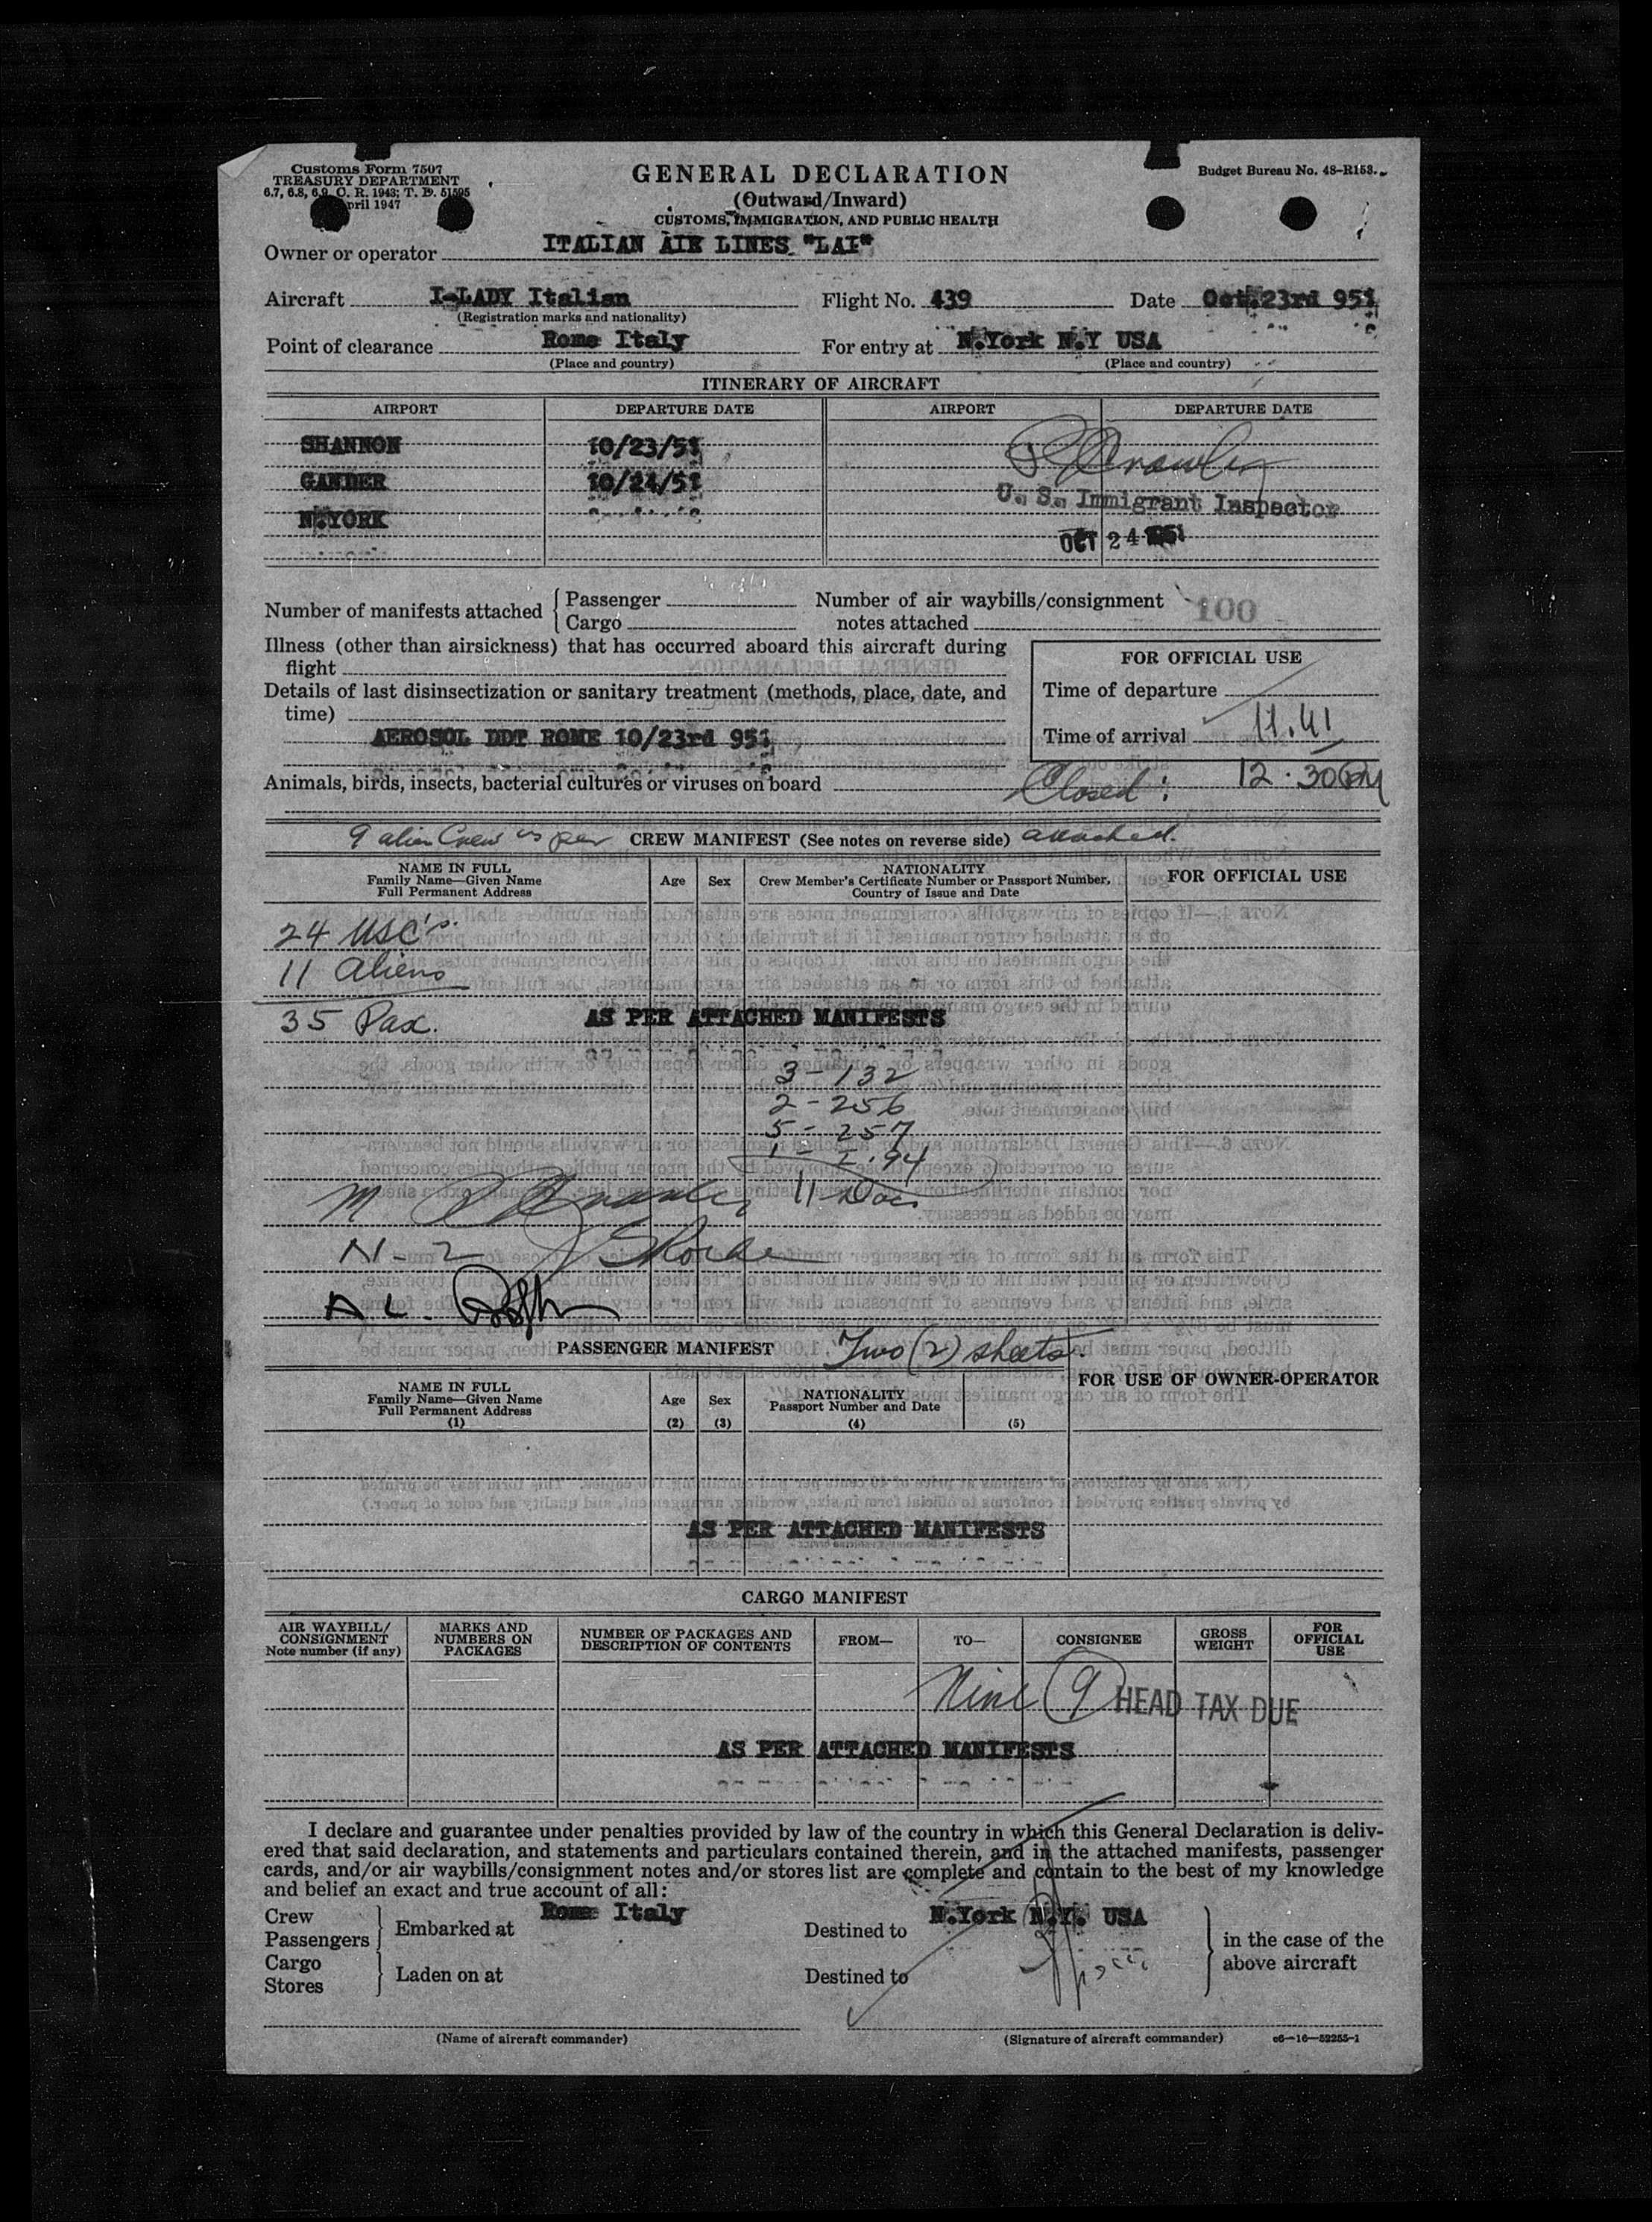 Customs Form 7507
TREASURY DEPARTMENT
6.7, 6.8, 6.9, C. R. 1943; T. D. 51595
April 1947
GENERAL DECLARATION
(Outward/Inward)
CUSTOMS, IMMIGRATION, AND PUBLIC HEALTH
Budget Bureau No. 48-R153.
Owner or operator ITALIAN AIR LINES "LAI"
Aircraft I-LADY Italian Flight No. 439 Date Oct.23rd 951
(Registration marks and nationality)
Point of clearance Rome Italy For entry at N.York N.Y USA
(Place and country) (Place and country)
ITINERARY OF AIRCRAFT
AIRPORT DEPARTURE DATE AIRPORT DEPARTURE DATE
SHANNON 10/23/51
GANDER 10/24/51
U. S. Immigrant Inspector
N.YORK
OCT 24 1951
Number of manifests attached { Passenger
Cargo
Number of air waybills/consignment
notes attached
100
Illness (other than airsickness) that has occurred aboard this aircraft during
flight
Details of last disinsectization or sanitary treatment (methods, place, date, and
time)
AEROSOL DDT ROME 10/23rd 951
FOR OFFICIAL USE
Time of departure
Time of arrival 11.41
Animals, birds, insects, bacterial cultures or viruses on board
Closed: 12.30 PM
9 alien Crew as per CREW MANIFEST (See notes on reverse side) attached.
NAME IN FULL
Family Name—Given Name
Full Permanent Address
Age Sex
NATIONALITY
Crew Member's Certificate Number or Passport Number,
Country of Issue and Date
FOR OFFICIAL USE
24 USC's.
11 Aliens
35 Pax.
AS PER ATTACHED MANIFESTS
3 - 132
2 - 256
5 - 257
1 - I.94
11 Docs
M
N-2
A L.
PASSENGER MANIFEST Two (2) sheets.
NAME IN FULL
Family Name—Given Name
Full Permanent Address
(1)
Age
(2)
Sex
(3)
NATIONALITY
Passport Number and Date
(4) (5)
FOR USE OF OWNER-OPERATOR
AS PER ATTACHED MANIFESTS
CARGO MANIFEST
AIR WAYBILL/
CONSIGNMENT
Note number (if any)
MARKS AND
NUMBERS ON
PACKAGES
NUMBER OF PACKAGES AND
DESCRIPTION OF CONTENTS
FROM— TO— CONSIGNEE
GROSS
WEIGHT
FOR
OFFICIAL
USE
Nine (9) HEAD TAX DUE
AS PER ATTACHED MANIFESTS
I declare and guarantee under penalties provided by law of the country in which this General Declaration is deliv-
ered that said declaration, and statements and particulars contained therein, and in the attached manifests, passenger
cards, and/or air waybills/consignment notes and/or stores list are complete and contain to the best of my knowledge
and belief an exact and true account of all:
Crew
Passengers } Embarked at Rome Italy Destined to N.York N.Y. USA
Cargo
Stores } Laden on at Destined to
} in the case of the
above aircraft
(Name of aircraft commander) (Signature of aircraft commander) c6—16—52255-1